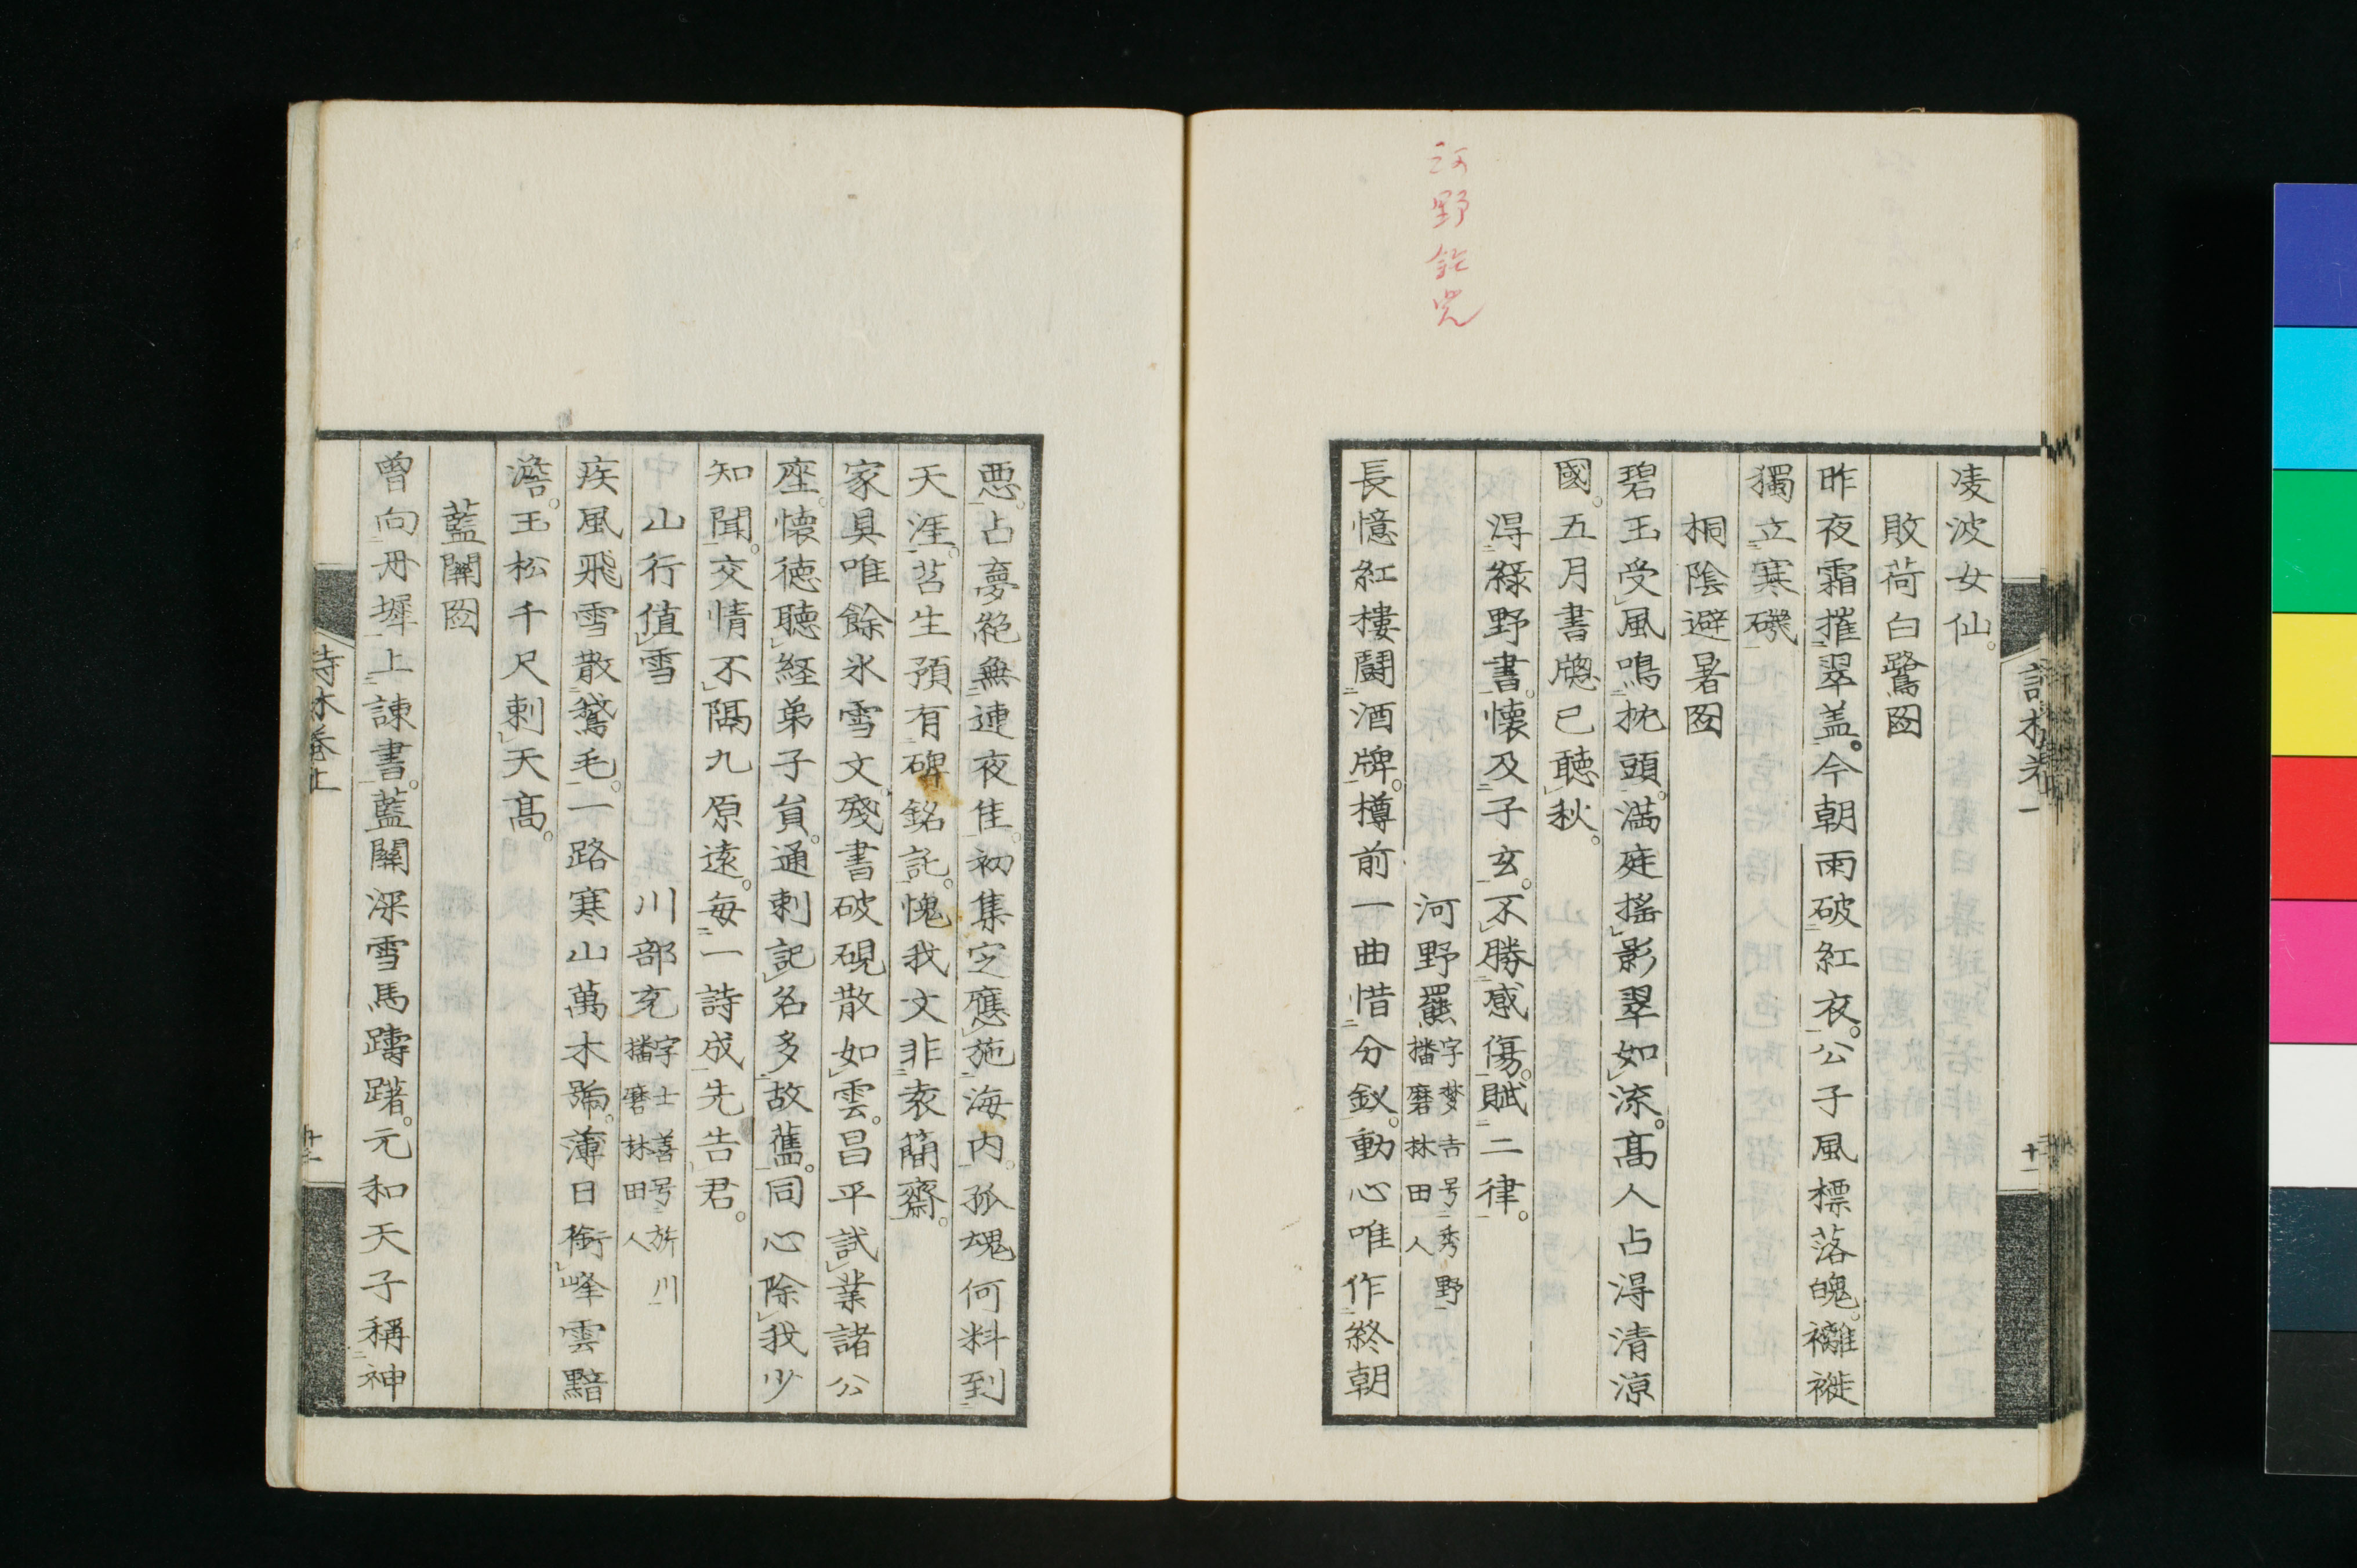 凌波女仙。
敗荷白鷺図
昨夜霜摧翠盖。今朝雨破紅衣。公子風標落魄。褵褷
獨立寒磯
桐陰避暑図
碧玉受風鳴枕頭。満庭搖影翠如流。髙人占得清凉
國。五月書牕已聴秋。
得緑野書。懐及子玄。不勝感傷。賦二律。
河野羆字夢吉号秀野播磨林田人
長憶紅樓鬪酒牌。樽前一曲惜分釵。動心唯作終朝
悪。占夢絶無連夜佳。初集定應施海内。孤魂何料到
天涯。苔生預有碑銘託。愧我文非袁簡齋。
家具唯餘氷雪文。殘書破硯散如雲。昌平試業諸公
座。懐徳聴経弟子員。通刺記名多故舊。同心除我少
知聞。交情不隔九原遠。毎一詩成先告君。
山行値雪　川部充字士善号旂川播磨林田人
疾風飛雪散鵞毛。一路寒山萬木號。薄日銜峰雲黯
澹。玉松千尺刺天髙。
藍関図
曽向丹墀上諌書。藍関深雪馬躊躇。元和天子稱神
詩林巻上
十一
河野